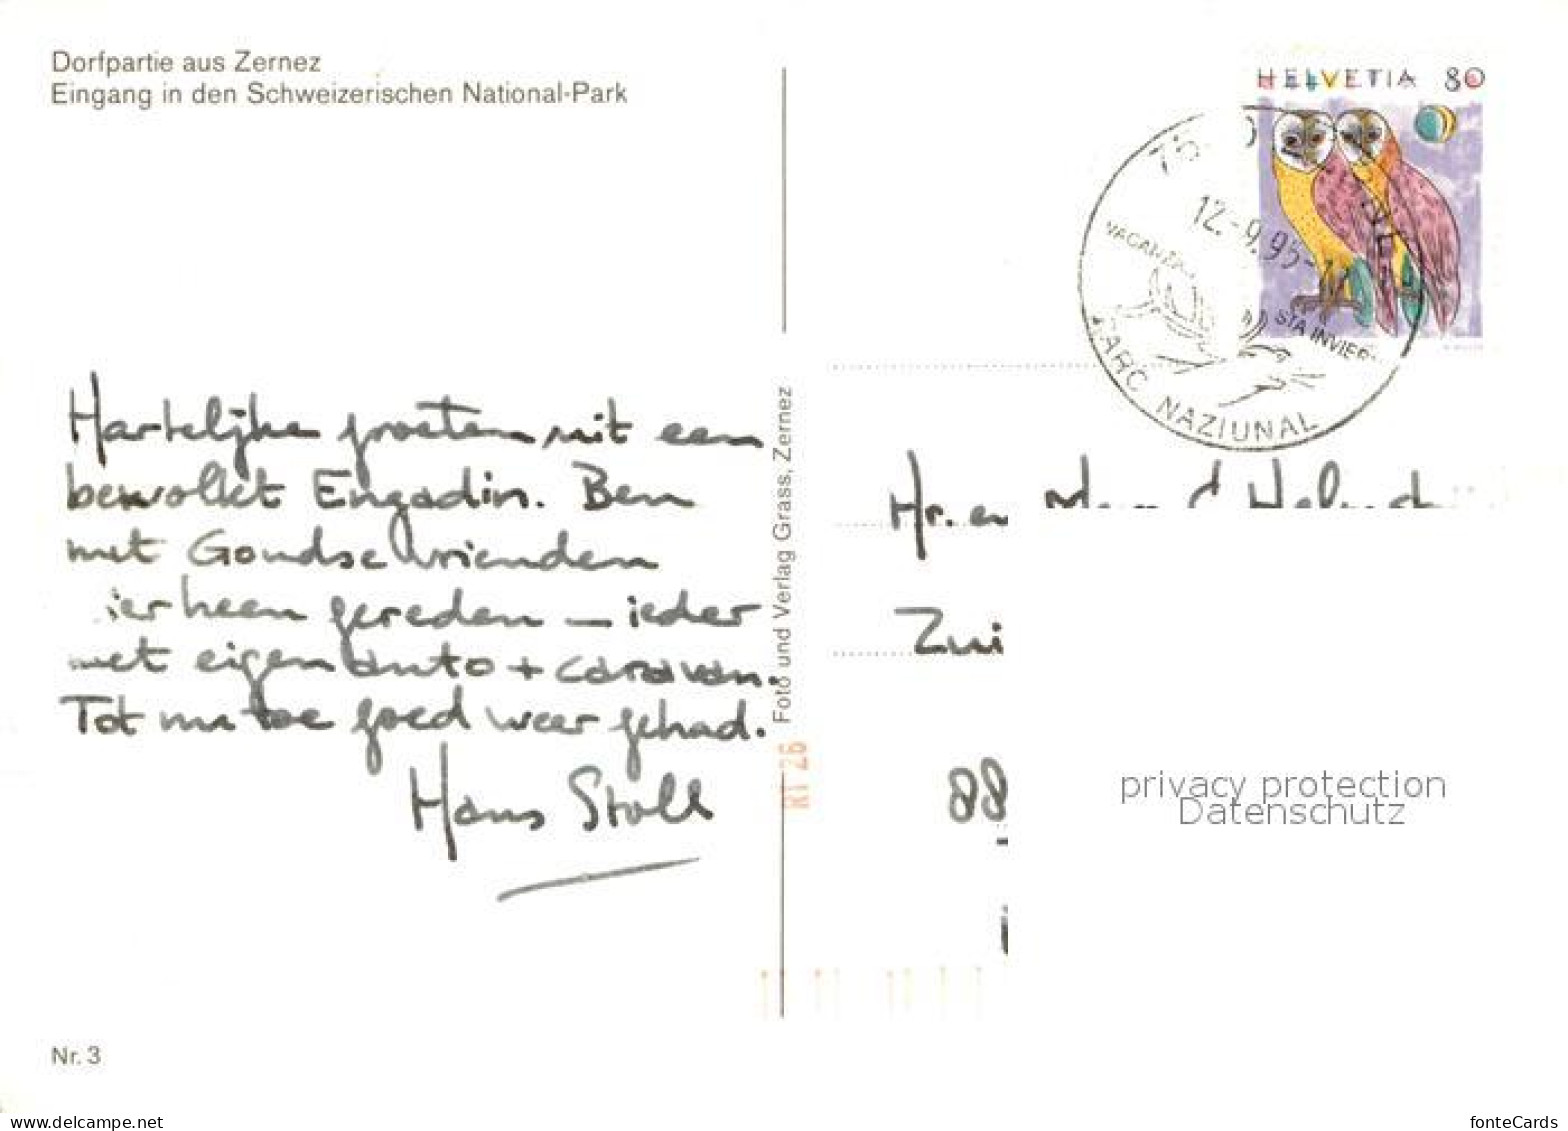 Dorfpartie aus Zernez
Eingang in den Schweizerischen National-Park
HELVETIA 80
12.-9.95-
VACANZA
STA INVIER
PARC NAZIUNAL
Hartelijke groeten uit een
bewolkt Engadin. Ben
met Goudse vrienden
ierheen gereden — ieder
met eigen auto + caravan.
Tot nu toe goed weer gehad.
Hans Stoll
Foto und Verlag Grass, Zernez
RT 26
Hr. en
Zui
88
privacy protection
Datenschutz
Nr. 3
www.delcampe.net
fonteCards